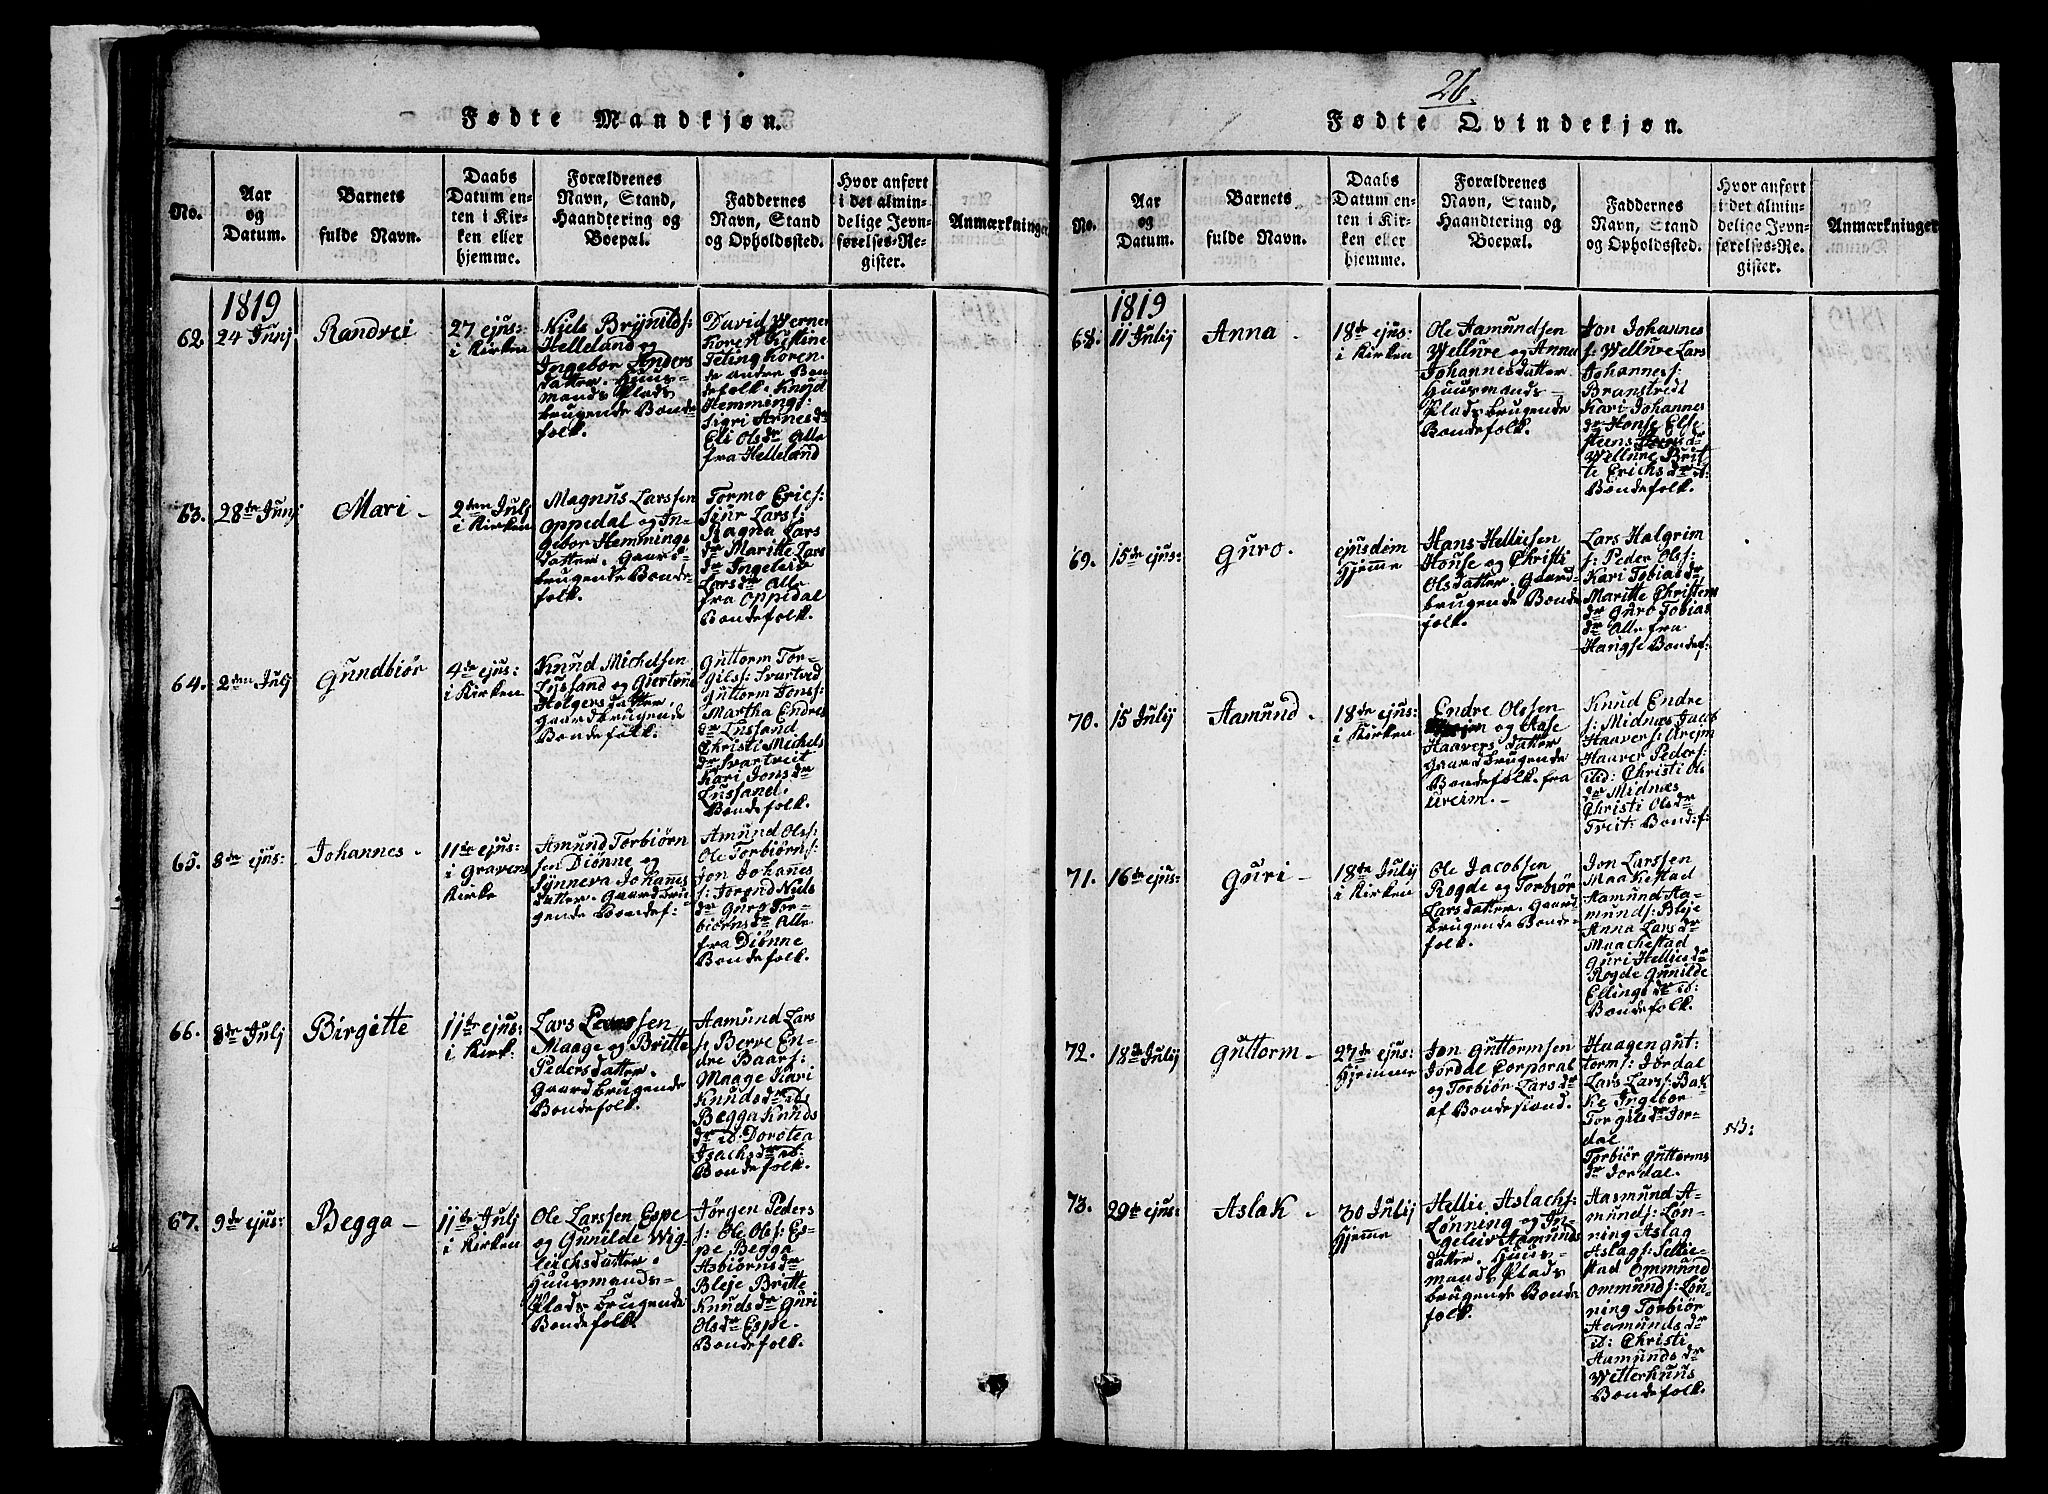 26.
Fødte Mandkjøn.
No.
Aar
og
Datum.
Barnets
fulde Navn.
Daabs
Datum en-
ten i Kir-
ken eller
hjemme.
Forældrenes
Navn, Stand,
Haandtering og
Boepæl.
Faddernes
Navn, Stand
og Opholdssted.
Hvor anført
i det almin-
delige Jevn-
førelses-Re-
gister.
Anmærkninger
1819
62.
24 Junj
Randvei
27 ejus:
i Kirken
Niels Brynilds:
Helleland og
Ingebor Enders
datter. Huus-
mands Plads
brugende Bonde
folk.
David Werner
Koren Kistine
Teling Koren.
de andre Bon
defolk: Knud
Hemmings:
Sigri Arnes dr
Eli Ols dr Alle
fra Helleland
63.
28de Junj
Mari -
2den Julj
i Kirken
Magnus Larssen
Oppedal og In-
gebor Hemmings
datter. Gaard-
brugende Bonde-
folk.
Tormo Erics:
Siur Lars:
Ragna Lars
dr Maritte Lars
dr Ingeleiv
Lars dr Alle
fra Oppedal
Bondefolk.
64.
2den Julj
Gundbiør
4de ejus:
i Kirken
Knud Michelsen
Lussand og Giertrud
Holgers datter,
gaardbrugende
Bondefolk.
Guttorm Tor-
gils: Svartvid
Guttorm Jons:
Martha Endres
dr Lussand
Christi Michels
dr Svartveit
Kari Jons dr
Lussand.
Bondefolk.
65.
8de ejus:
Johannes -
11de ejus:
i Gravens
Kirke
Amund Torbiørn
sen Diønne og
Synneva Johannes
datter. Gaardbru-
gende Bondef:
Amund Ols:
Ole Torbiørns:
Jon Johannes
s: Torond Niels
dr Guro Tor-
biørns dr Alle
fra Diønne
Bondefolk.
66.
8de Julj
Birgitte
11te ejus:
i Kirk:
Lars Larssen
Maage og Britte
Pedersdatter.
Gaardbrugende
Bondefolk.
Aamund Lars
s: Berve En-
dre Baars:
Maage Kari
Knuds dr ibs
Begga Knuds
dr id: Dorotea
Isachs dr ib:
Bondefolk.
67.
9de ejus:
Begga -
11te Julj
i Kirken
Ole Larssen Espe
og Gunilde Wig-
leichsdatter.
Huusmands-
Plads brugende
Bondefolk.
Jørgen Peders
s: Ole Ols: Es-
pe, Begga
Asbiørns dr
Bleje Britte
Knuds dr Guri
Ols dr Espe.
Bondefolk.
Fødte Qvindekjøn.
No.
Aar
og
Datum.
Barnets
fulde Navn.
Daabs
Datum en-
ten i Kir-
ken eller
hjemme.
Forældrenes
Navn, Stand,
Haandtering og
Boepæl.
Faddernes
Navn, Stand
og Opholdssted.
Hvor anført
i det almin-
delige Jevn-
førelses-Re-
gister.
Anmærkninger
1819
68.
11 Julij
Anna -
18de ejus:
i Kirken
Ole Aamundsen
Wellure og Anna
Johannesdatter.
Huusmands-
Plads brugende
Bondefolk.
Jon Johannes
s: Wellure Lars
Johannes:
Branstvedt
Kari Johannes
dr Honse Else
Steens dr
Wellure Brit-
te Erichs dr ib:
Bondefolk.
69.
15de ejus:
Guro.
ejusdem
Hjemme
Hans Helliesen
Honse og Christi
Olsdatter. Gaard-
brugende Bonde
folk.
Lars Halgrim
s: Peder Ols:
Kari Tobias dr
Maritte Christens
dr Guro Tobias
dr Alle fra
Haugse Bondef:
70.
15 Julij
Aamund -
18de ejus:
i Kirken
Endre Olssen
og Aase
Haavers datter
Gaardbrugende
Bondefolk. fra
Ureim. -
Knud Endre
s: Midnæs Jacob
Haavers: Ureim
Haaver Peders:
ibid: Christi Ols
dr Midnæs
Christi Ols dr
Treit: Bondf:
71.
16de ejus:
Guri -
18de Julij
i Kirken
Ole Jacobsen
Rogde og Torbiør
Larsdatter. Gaard
brugende Bonde-
folk.
Jon Larssen
Maakestad
Aamund Aa-
munds: Bleje
Anna Lars dr
Maachestad
Guri Hellies dr
Rogde Gunilde
Ellings dr ib:
Bondefolk.
72.
18de Julij
Guttorm -
27de ejus:
Hjemme
Jon Guttormsen
Jordal Corporal
og Torbiør Lars dr
af Bondestand.
Haagen Gut-
torms: Jordal
Lars Lars: Bak-
ke Ingebor
Torgils dr Jor-
dal
Torbiør Guttorms
dr Jordal.
NB:
73.
29de ejus:
Aslak -
30 Julij
Hjemme
Hellie Aslachs:
Lønning og In-
geleiv Aamunds
datter. Huus-
mands Plads
brugende Bonde
folk.
Aasmund A-
munds: Løn-
ning Aslag
Aslags: Sellie-
stad Ommund
Ommunds: Løn-
ning Torbiør
Aamunds dr
ib: Christi
Aamunds dr
Wetterhuus
Bondefolk.